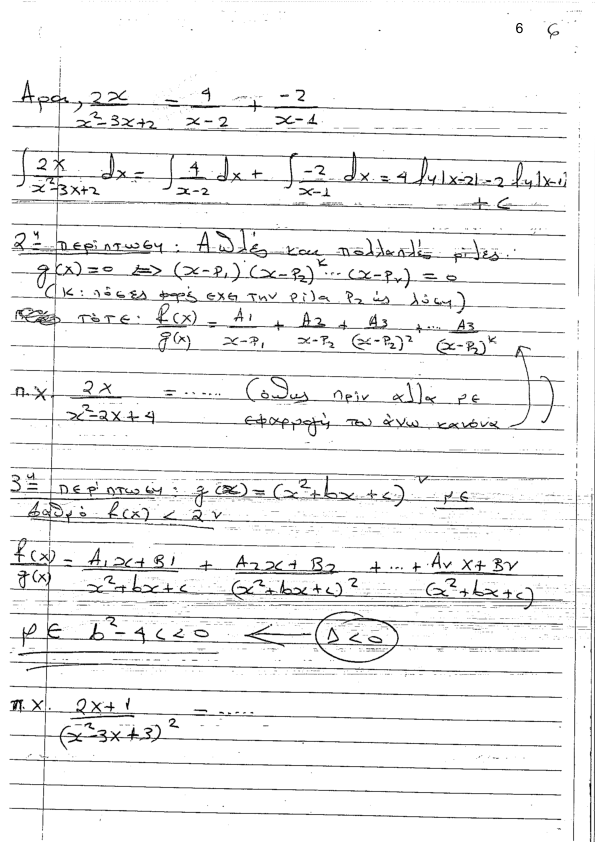 6 6
Αρα, 2x/(x²-3x+2) = 4/(x-2) + -2/(x-1)
∫ 2x/(x²-3x+2) dx = ∫ 4/(x-2) dx + ∫ -2/(x-1) dx = 4 ln|x-2| - 2 ln|x-1|
+ c
2η περίπτωση: Απλές και πολλαπλές ρίζες:
g(x)=0 <=> (x-P₁)(x-P₂)^κ ... (x-Pν) = 0
(κ: πόσες φορές εχει την ρίζα P₂ ως λύση)
τότε: f(x)/g(x) = A1/(x-P₁) + A2/(x-P₂) + A3/(x-P₂)² + ... A3/(x-P₂)^κ
π.χ 2x/(x²-2x+4) = ...... (όπως πριν αλλα με
εφαρμογή του άνω κανόνα)
3η περίπτωση: g(x) = (x²+bx+c)^ν με
βαθμό f(x) < 2ν
f(x)/g(x) = (A₁x+B1)/(x²+bx+c) + (A2x+B2)/(x²+bx+c)² + ... + (Aν x+Bν)/(x²+bx+c)
με b²-4c<0 ← Δ<0
π.χ. (2x+1)/(x²-3x+3)² = .....